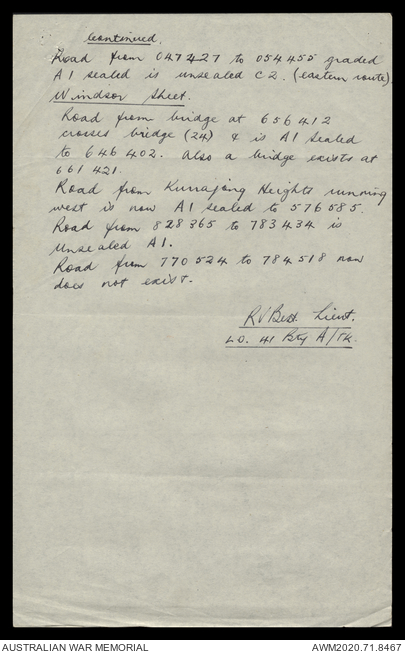 Continued.
Road from 047427 to 054455 graded
A1 sealed is unsealed C2. (eastern route)
Windsor Sheet.
Road from bridge at 656412
crosses bridge (24) & is A1 Sealed
to 646402. Also a bridge exists at
661421.
Road from Kurrajong Heights running
west is now A1 sealed to 576585.
Road from 828365 to 783434 is
Unsealed A1.
Road from 770524 to 784518 now
does not exist.
RV Lieut.
41 Bty A/Tk.
AUSTRALIAN WAR MEMORIAL
AWM2020.71.8467